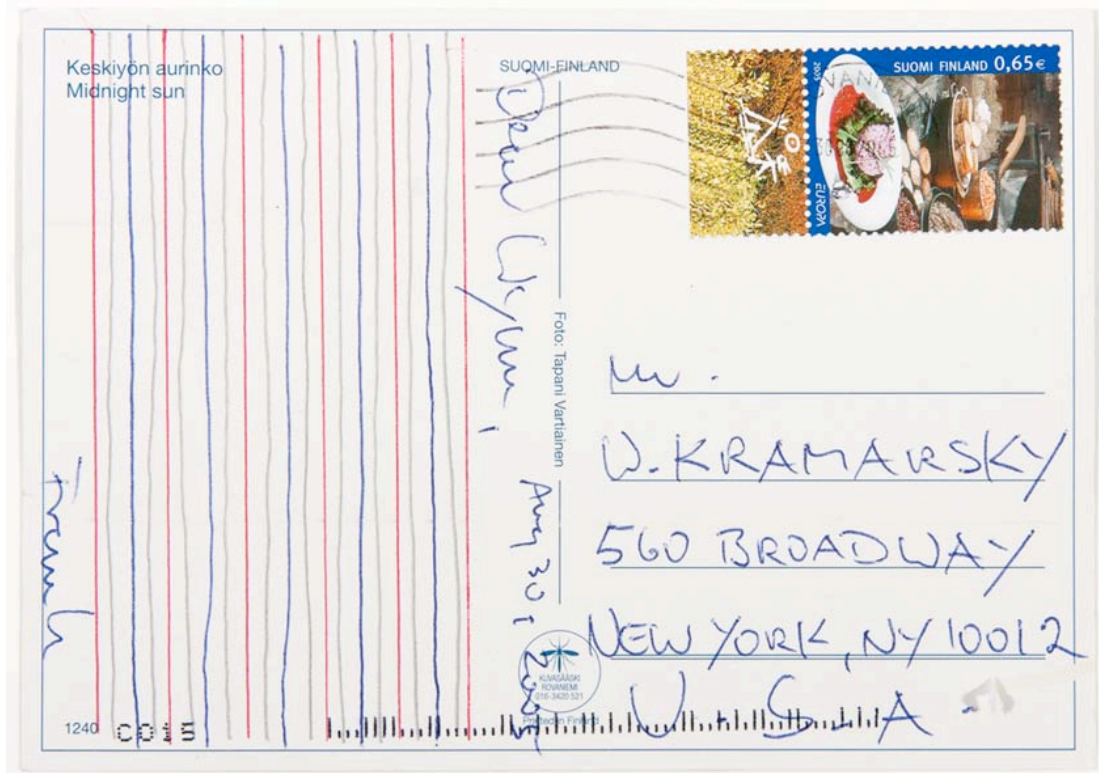 Keskiyön aurinko
Midnight sun
SUOMI-FINLAND
SUOMI FINLAND 0,65€
2005
EUROPA
Dear Wynn,
Aug 30, 2005
Foto: Tapani Vartiainen
Mr.
W. KRAMARSKY
560 BROADWAY
NEW YORK, NY 10012
U.S.A.
Frank
KUVASÄÄSKI
ROVANIEMI
016-3420 521
Printed in Finland
1240